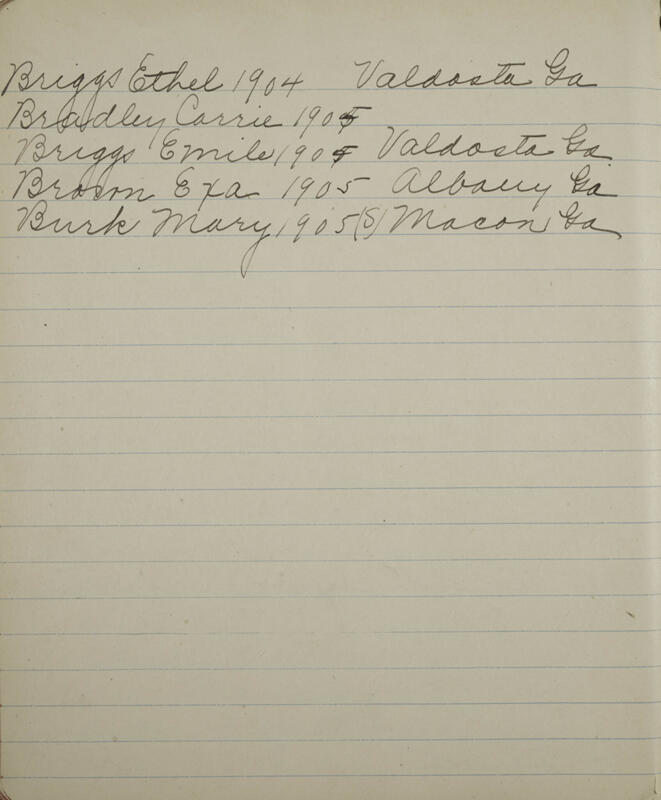 Briggs Ethel 1904 Valdosta Ga
Bradley Carrie 1905
Briggs Emile 1905 Valdosta Ga
Brown Exa 1905 Albany Ga
Burk Mary 1905 (S) Macon Ga